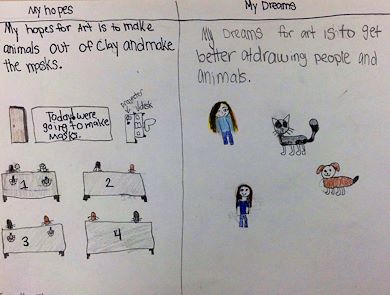 My hopes
My hopes for Art is to make
animals out of Clay and make
the masks.
Today were
going to make
Masks.
projector
1
2
3
4
My Dreams
My Dreams for art is to get
better at drawing people and
animals.